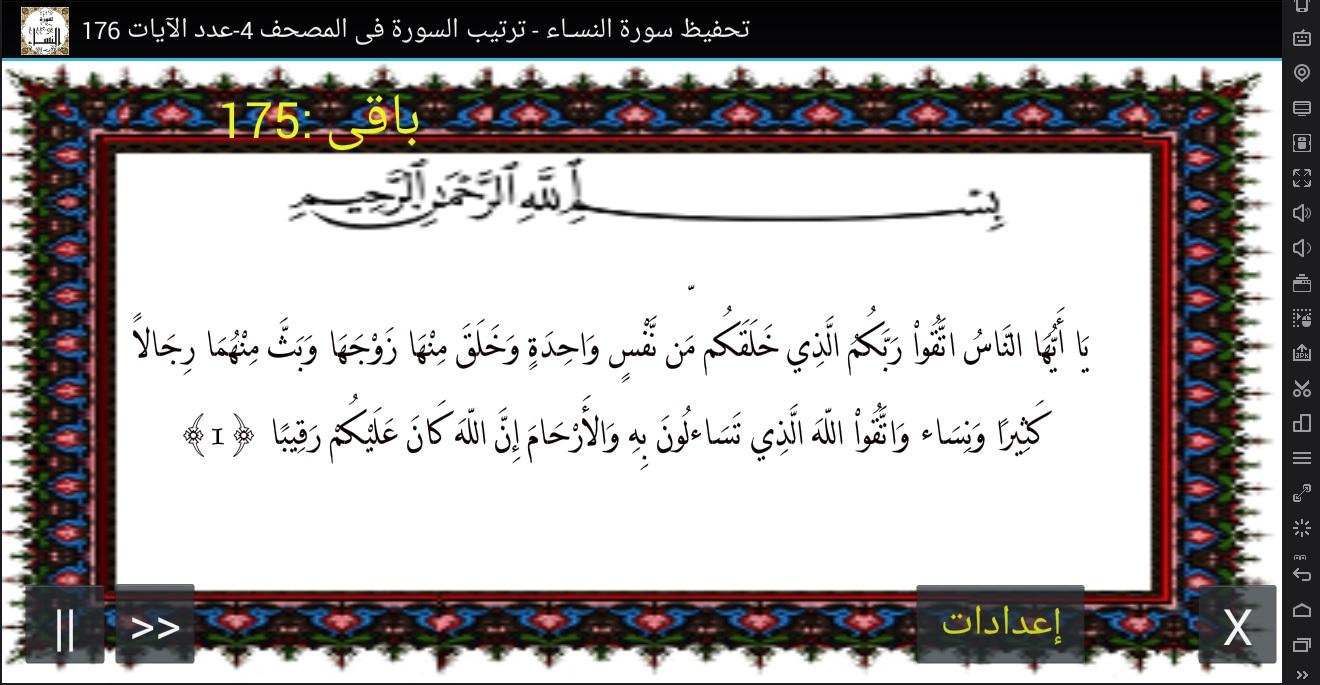 تحفيظ سورة النساء - ترتيب السورة فى المصحف 4-عدد الآيات 176
باقى :175
بِسْمِ ٱللَّهِ ٱلرَّحْمَٰنِ ٱلرَّحِيمِ
يَا أَيُّهَا النَّاسُ اتَّقُواْ رَبَّكُمُ الَّذِي خَلَقَكُم مَن نَّفْسٍ وَاحِدَةٍ وَخَلَقَ مِنْهَا زَوْجَهَا وَبَثَّ مِنْهُمَا رِجَالاً
كَثِيرًا وَنِسَاء وَاتَّقُواْ اللّهَ الَّذِي تَسَاءلُونَ بِهِ وَالأَرْحَامَ إِنَّ اللّهَ كَانَ عَلَيْكُمْ رَقِيبًا ﴿1﴾
|| >> إعدادات X